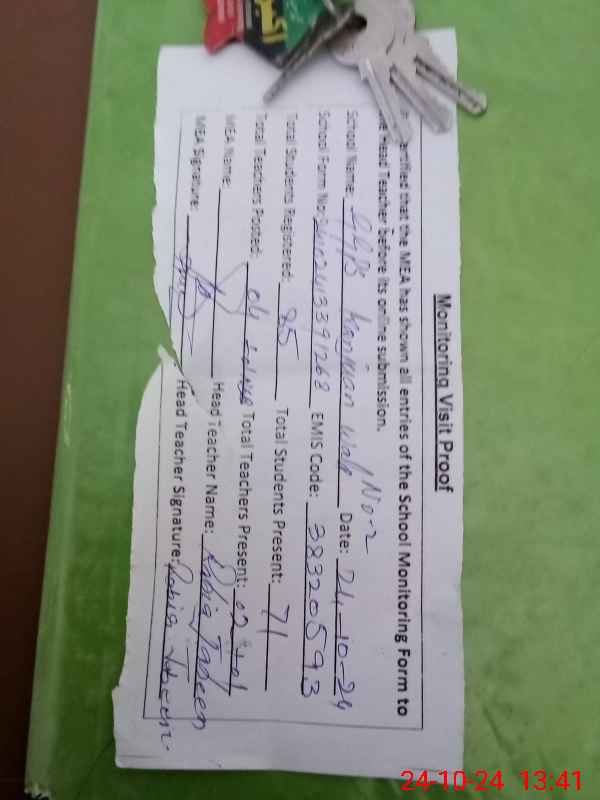 Monitoring Visit Proof
ertified that the MEA has shown all entries of the School Monitoring Form to
Head Teacher before its online submission.
School Name: GGPS wala No-2 Date: 24-10-24
School Form No: EMIS Code: 38320593
Total Students Registered: 85 Total Students Present: 71
Total Teachers Posted: 04 Total Teachers Present: 03
MEA Name: Head Teacher Name: Rabia
MEA Signature: Head Teacher Signature: Rabia
24-10-24 13:41